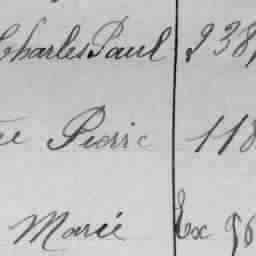 Charles Paul 238
ée Pierre 118
Marie Ex 96